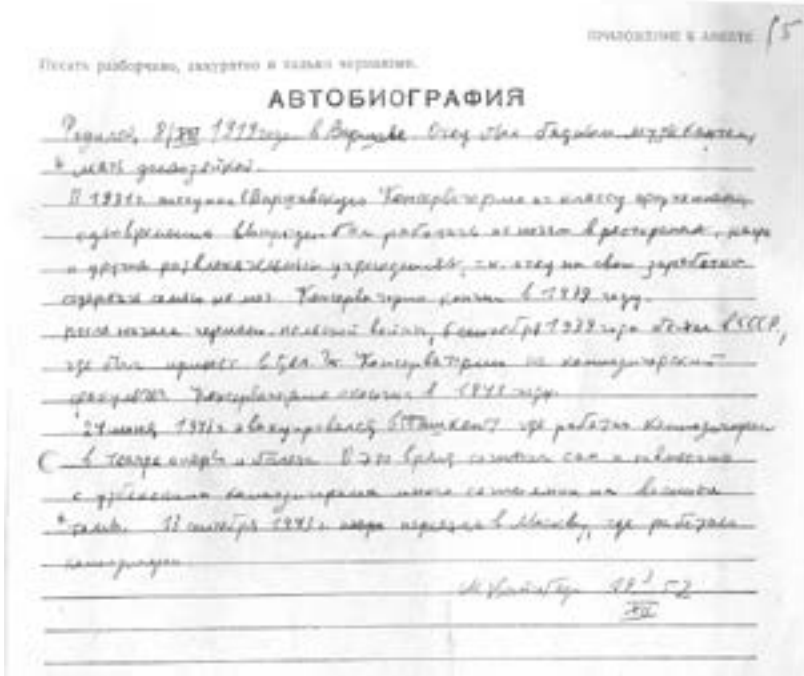 ПРИЛОЖЕНИЕ К АНКЕТЕ 15
Писать разборчиво, аккуратно и только чернилами.
АВТОБИОГРАФИЯ
Родился 8/XII 1919 года в Варшаве. Отец был бедным музыкантом,
мать домохозяйкой.
В 1931 г. поступил в Варшавскую Консерваторию по классу фортепиано
одновременно вынужден был работать по ночам в ресторанах,
и других развлекательных учреждениях, т.к. отец на свой заработок
содержать семью не мог. Консерваторию кончил в 1939 году.
После начала германо-польской войны, в сентябре 1939 года бежал в СССР,
где был принят в Бел. Гос. Консерваторию на композиторский
факультет. Консерваторию окончил в 1941 году.
24 июня 1941 г. эвакуировался в Ташкент где работал композитором
в театре оперы и балета. В это время сочинил сам и совместно
с узбекскими композиторами много сочинений на военные
темы. 13 сентября 1943 г. переехал в Москву, где работаю
композитором.
XII 52